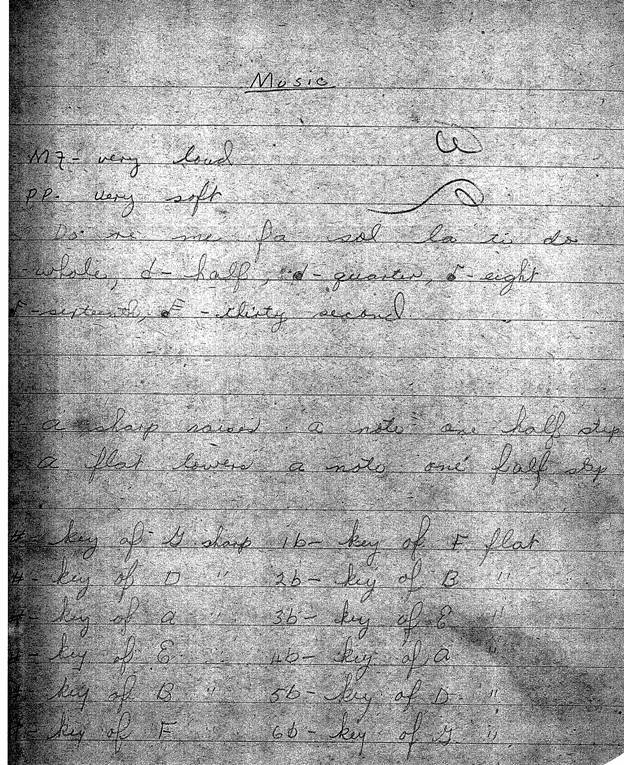 Music
Mf - very loud
pp. very soft
Do re me fa sol la ti do
-whole, d- half, d- quarter, eight
-sixteenth, -thirty second
a sharp raises a note one half step
a flat lowers a note one falf step
#- key of G sharp 1b- key of F flat
#- key of D " 2b- key of B "
#- key of A " 3b- key of E "
- key of E " 4b- key of A "
- key of B " 5b- key of D "
- key of F 6b- key of G "